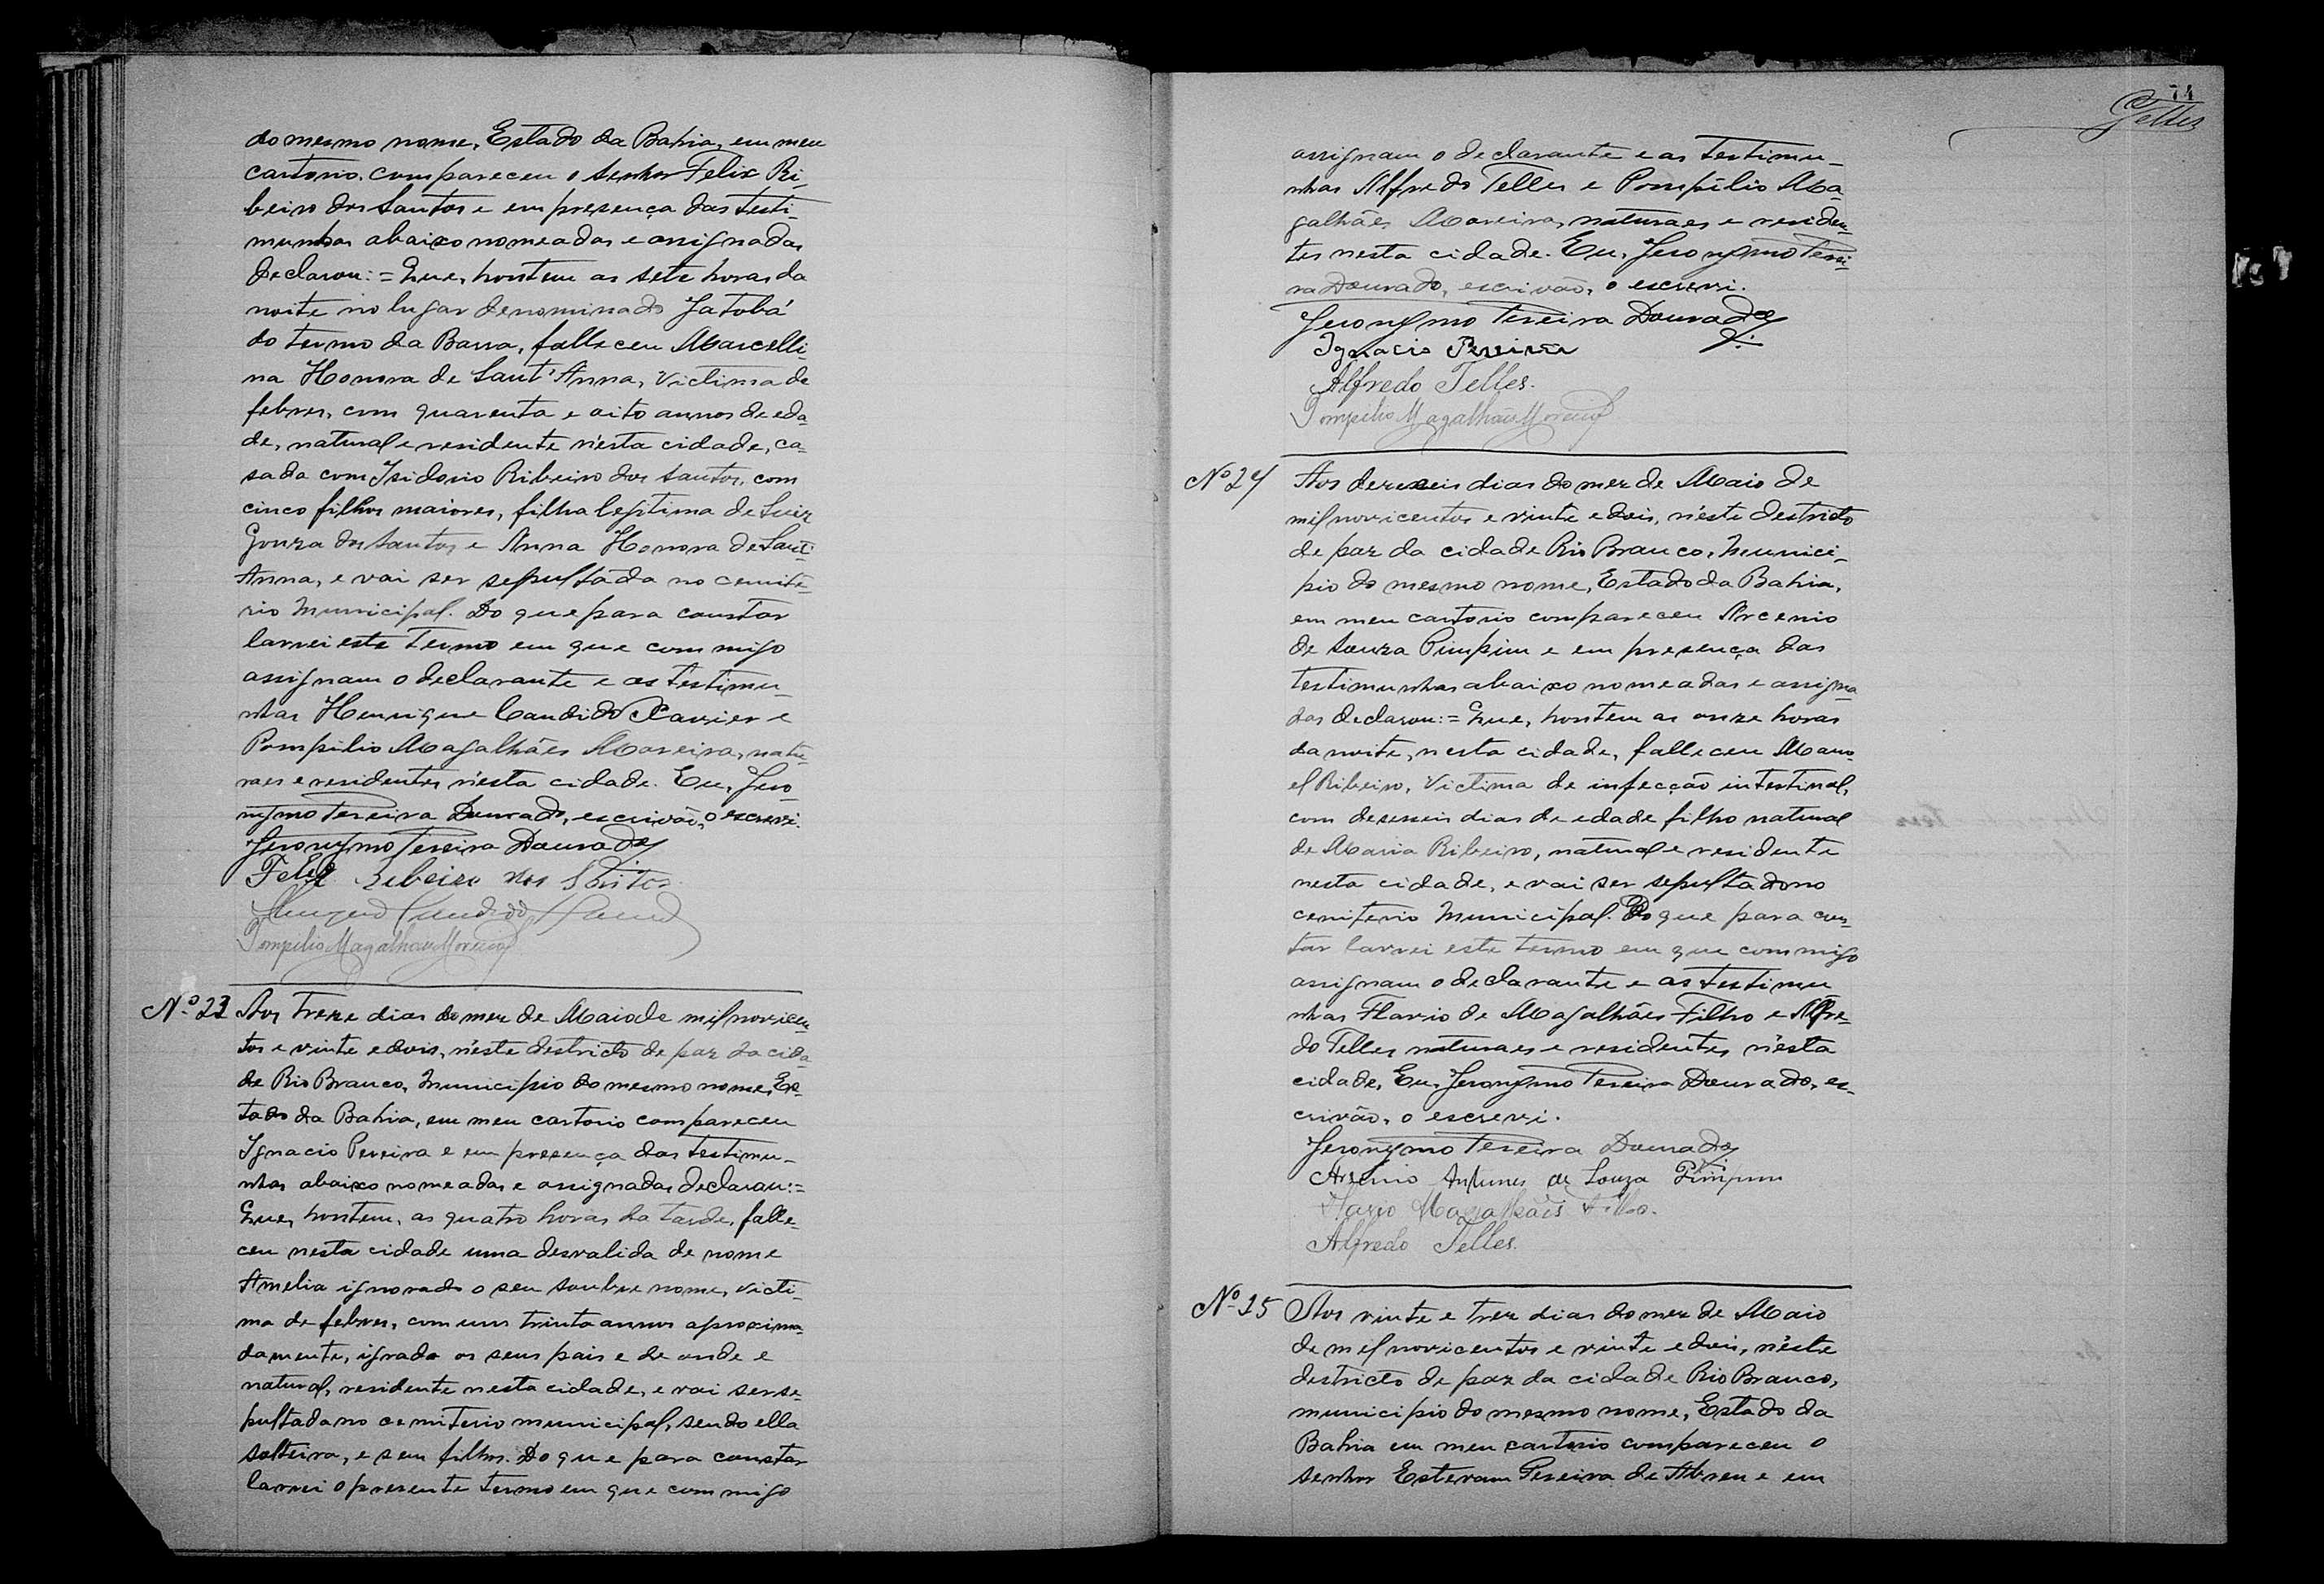 do mesmo nome, Estado da Bahia, em meu
cartorio, compareceu o senhor Felix Ri-
beiro dos Santos e em presença das testi-
munhas abaixo nomeadas e assignadas
declarou:= Que, hontem as sete horas da
noite no lugar denominado Jatobá
do termo da Barra, falleceu Marcelli-
na Honora de Sant'Anna, victima de
febres, com quarenta e oito annos de eda-
de, natural e residente n'esta cidade, ca-
sada com Isidorio Ribeiro dos Santos, com
cinco filhos maiores, filha legitima de Luiz
Gonza dos Santos e Anna Honora de Sant'
Anna, e vai ser sepultada no cemite-
rio Municipal. Do que para constar
lavrei este termo em que commigo
assignam o declarante e as testimu-
nhas Henrique Candido Xavier e
Pompilio Magalhães Moreira, natu-
raes e residentes n'esta cidade. Eu, Jero-
nymo Pereira Dourado, escrivão, o escrevi.
Jeronymo Pereira Dourado
Felix Ribeiro dos Santos
Candido
Pompilio Magalhães Moreira
Nº 23 Aos treze dias do mez de Maio de mil novicen-
tos e vinte e dois, n'este destricto de paz da cida-
de Rio Branco, Municipio do mesmo nome, Es-
tado da Bahia, em meu cartorio compareceu
Ignacio Pereira e em presença das testimu-
nhas abaixo nomeadas e assignadas declarou:=
Que, hontem, as quatro horas da tarde, falle-
ceu nesta cidade uma desvalida de nome
Amelia ignorado o seu soubre nome, victi-
ma de febres, com uns trinta annos aproxima-
damente, igrado os seus pais e de onde e
natural, residente nesta cidade, e vai ser se-
pultada no cemiterio municipal, sendo ella
solteira, e sem filhos. Do que para constar
lavrei o presente termo em que commigo
74
Telles
assignam o declarante e as testimu-
nhas Alfredo Telles e Pompilio Ma-
galhães Moreira, naturaes e residen-
tes nesta cidade. Eu, Jeronymo Perei-
ra Dourado, escrivão, o escrevi.
Jeronymo Pereira Dourado
Ignacio Pereira
Alfredo Telles.
Pompilio Magalhães Moreira
Nº 24 Aos dezeseis dias do mez de Maio de
mil novicentos e vinte e dois, n'este destricto
de paz da cidade Rio Branco, Munici-
pio do mesmo nome, Estado da Bahia,
em meu cartorio compareceu Arcenio
de Souza Pimpim e em presença das
testimunhas abaixo nomeadas e assigna-
das declarou:= Que, hontem as onze horas
da noite, nesta cidade, falleceu Mano-
el Ribeiro, victima de infecção intestinal,
com deseseis dias de edade filho natural
de Maria Ribeiro, natural e residente
nesta cidade, e vai ser sepultado no
cemiterio Municipal. Do que para cons-
tar lavrei este termo em que commigo
assignam o declarante e as testimu
nhas Flavio de Magalhães Filho e Alfre-
do Telles naturaes e residentes n'esta
cidade, Eu, Jeronymo Pereira Dourado, es-
crivão, o escrevi.
Jeronymo Pereira Dourado
Arsenio Antunes de Souza Pimpim
Flavio Magalhães Filho.
Alfredo Telles.
Nº 25 Aos vinte e trez dias do mez de Maio
de mil novicentos e vinte e dois, n'este
destricto de paz da cidade Rio Branco,
municipio do mesmo nome, Estado da
Bahia em meu cartorio compareceu o
senhor Estevam Pereira de Abreu e em